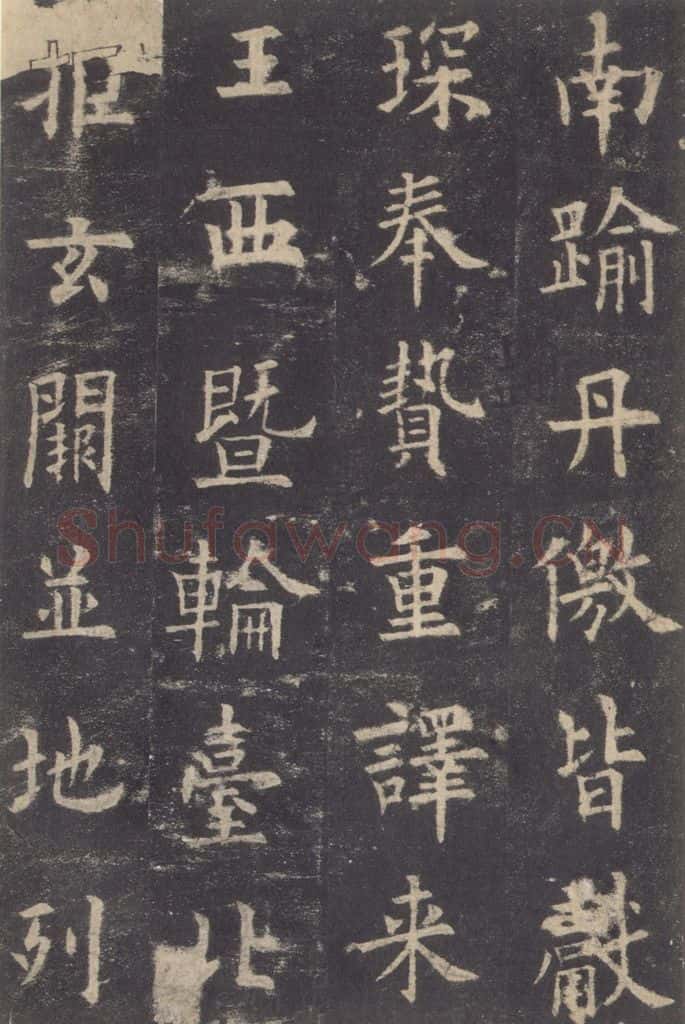 南踰丹儌皆獻
琛奉贄重譯来
王西暨輪臺北
拒玄闕並地列
Shufawang.cn